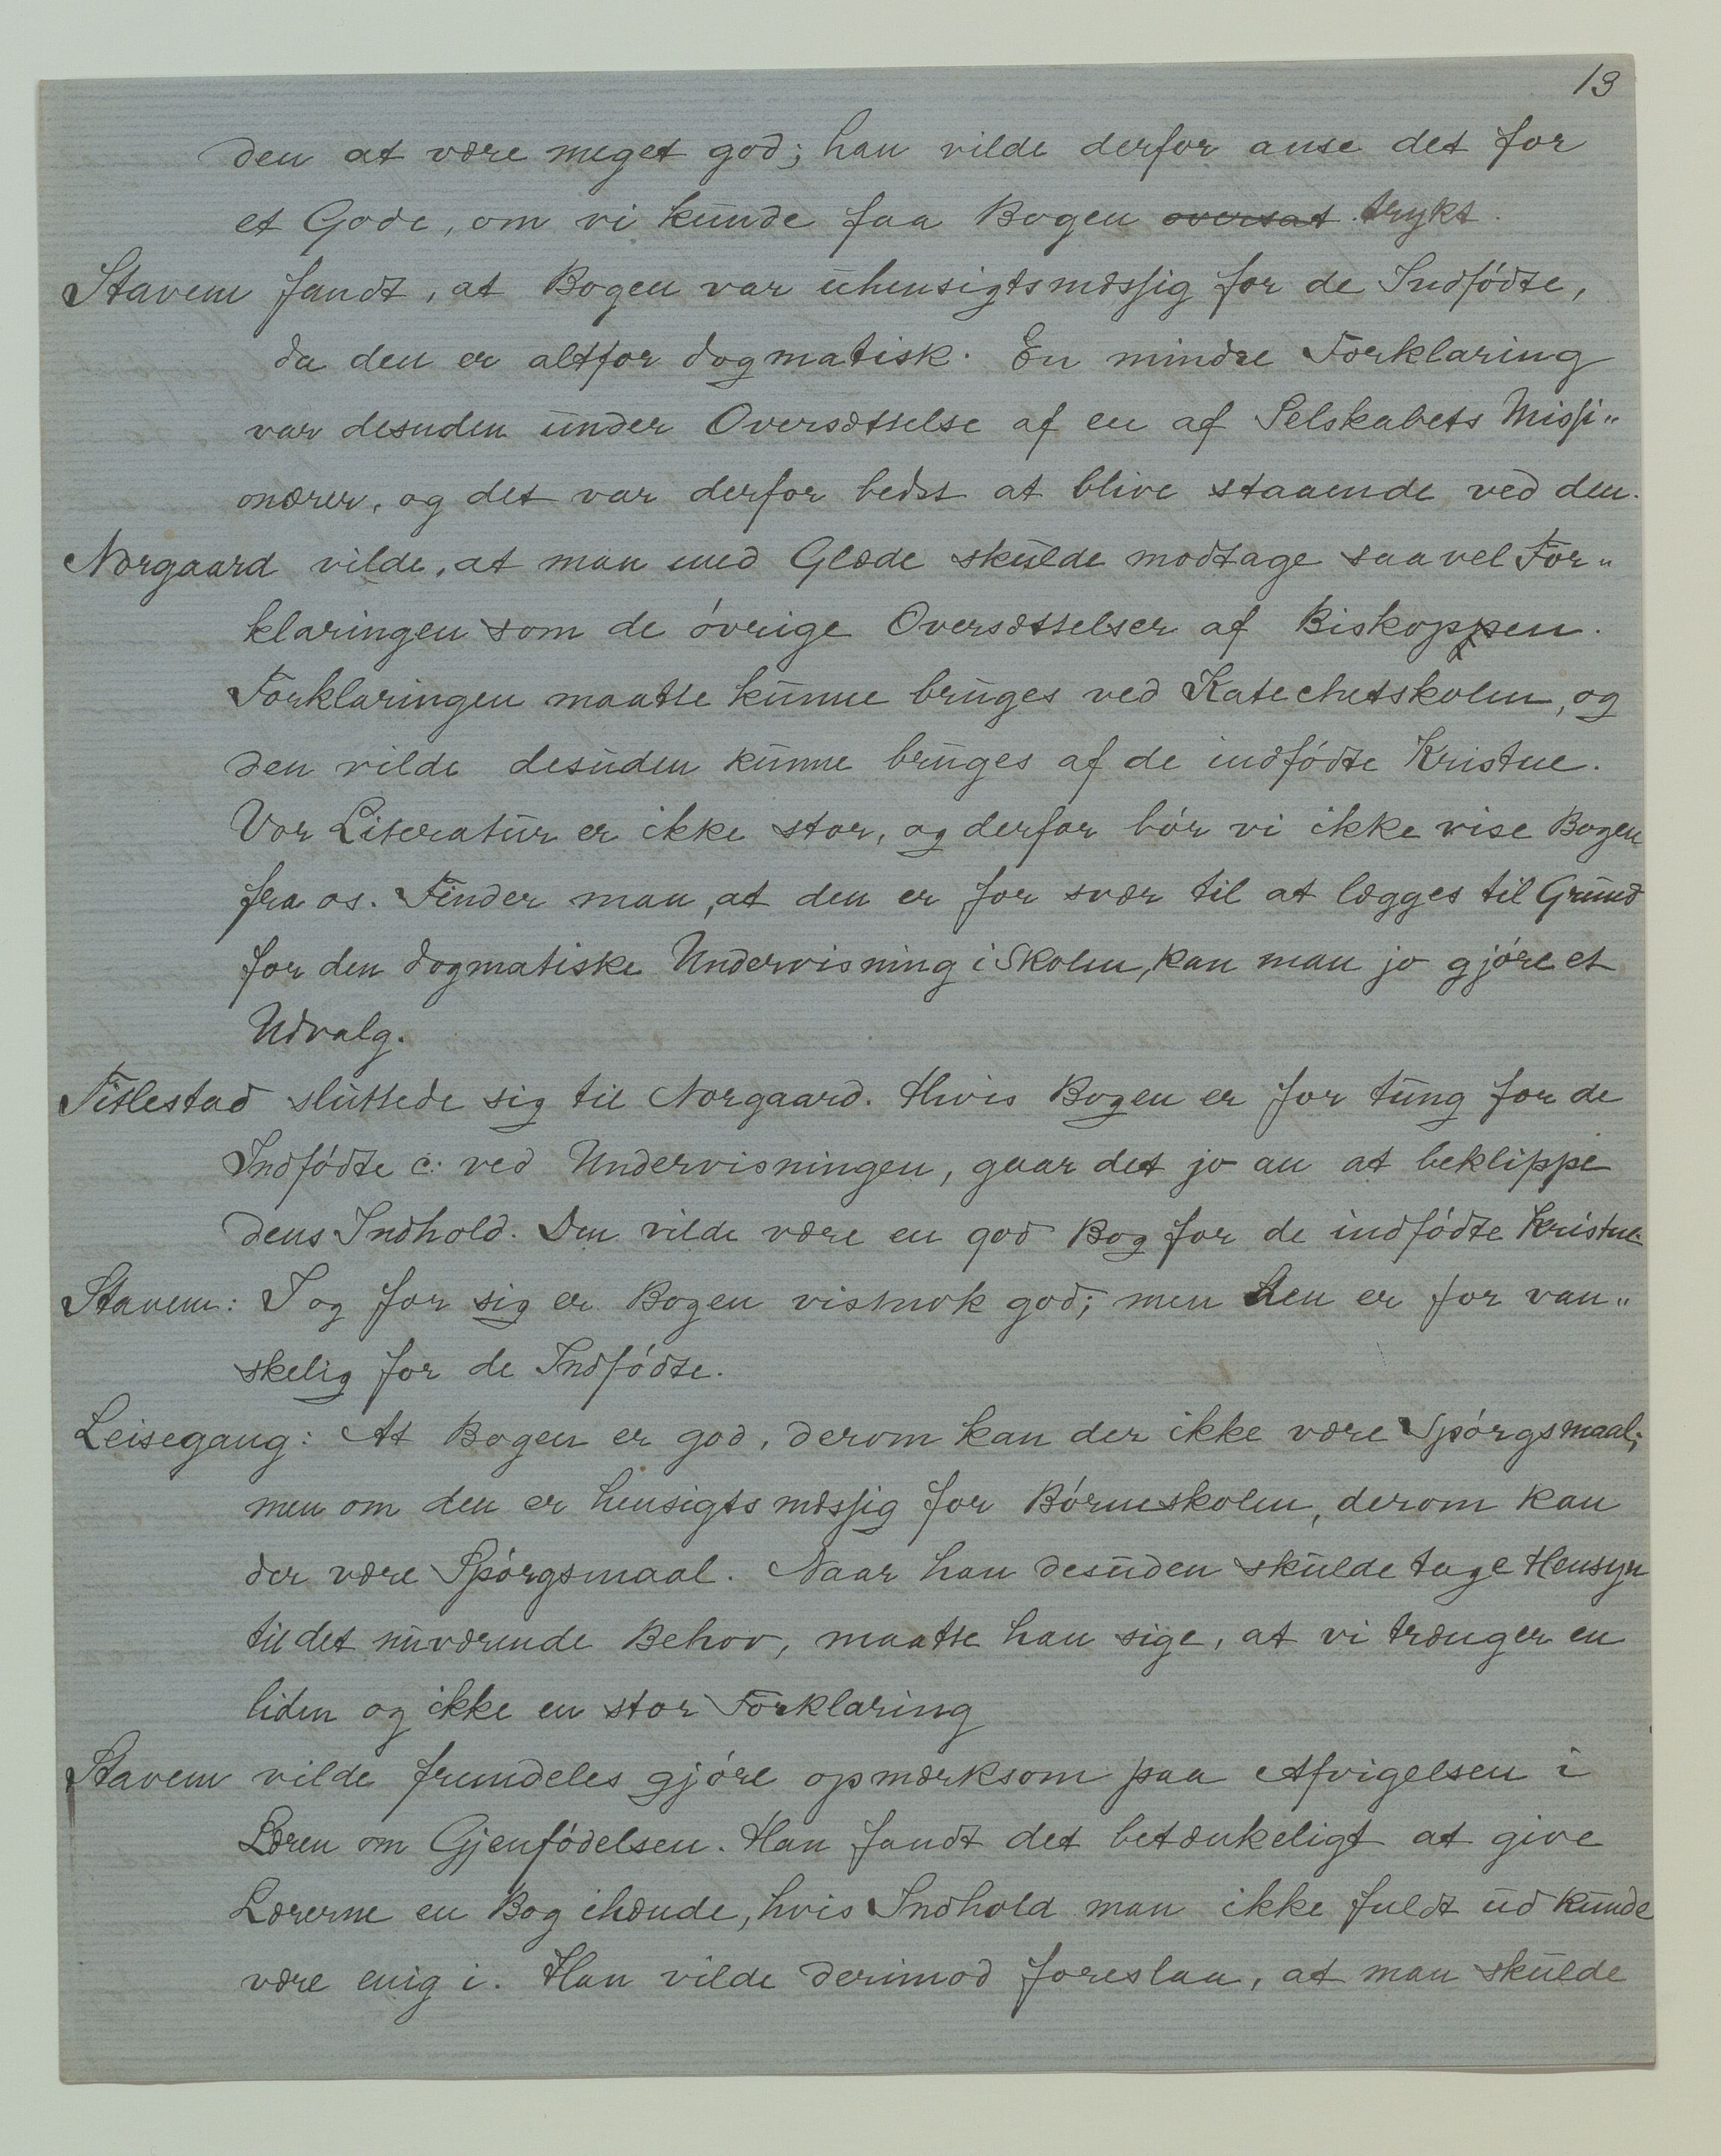 13
den at være meget god; han vilde derfor anse det for
et Gode, om vi kunde faa Bogen oversat trykt.
Stavem fandt, at Bogen var uhensigtsmæssig for de Indfødte,
da den er altfor dogmatisk. En mindre Forklaring
var desuden under Oversættelse af en af Selskabets Missi„
onærer, og det var derfor bedst at blive staaende ved den.
Norgaard vilde, at man med Glæde skulde modtage saavel For„
klaringen som de øvrige Oversættelser af Biskoppen.
Forklaringen maatte kunne bruges ved Katechetskolen, og
den vilde desuden kunne bruges af de indfødte Kristne.
Vor Literatur er ikke stor, og derfor bør vi ikke vise Bogen
fra os. Finder man, at den er for svær til at lægges til Grund
for den dogmatiske Undervisning i Skolen, kan man jo gjøre et
Udvalg.
Titlestad sluttede sig til Norgaard. Hvis Bogen er for tung for de
Indfødte ɔ: ved Undervisningen, gaar det jo an at beklippe
dens Indhold. Den vilde være en god Bog for de indfødte Kristne.
Stavem: I og for sig er Bogen vistnok god; men den er for van„
skelig for de Indfødte.
Leisegang: At Bogen er god, derom kan der ikke være Spørgsmaal;
men om den er hensigtsmæssig for Børneskolen, derom kan
der være Spørgsmaal. Naar han desuden skulde tage Hensyn
til det nuværende Behov, maatte han sige, at vi trænger en
liden og ikke en stor Forklaring
Stavem vilde fremdeles gjøre opmærksom paa Afvigelsen i
Læren om Gjenfødelsen. Han fandt det betænkeligt at give
Lærerne en Bog ihænde, hvis Indhold man ikke fuldt ud kunde
være enig i. Han vilde derimod foreslaa, at man skulde